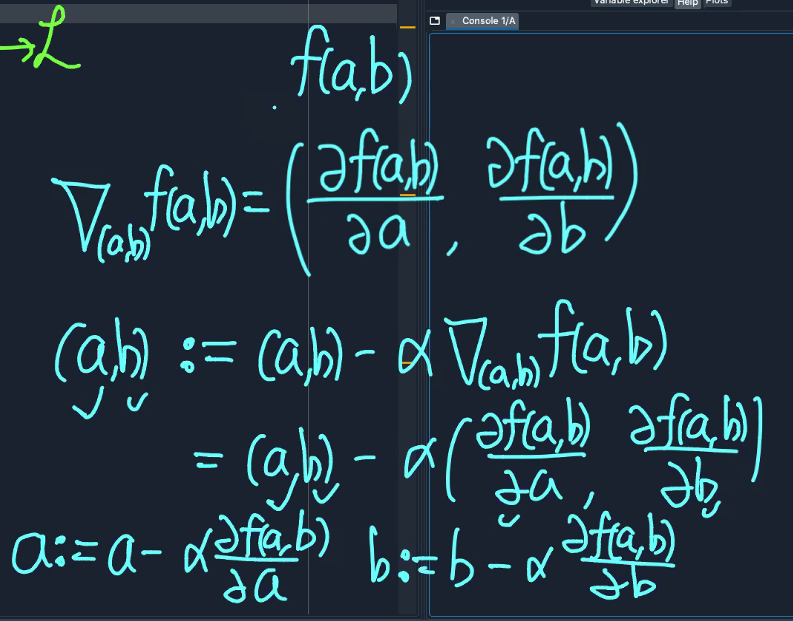 Variable explorer Help Plots
Console 1/A
→ℒ
f(a,b)
∇(a,b) f(a,b) = (∂f(a,b)/∂a , ∂f(a,b)/∂b)
(a,b) := (a,b) - α ∇(a,b) f(a,b)
= (a,b) - α (∂f(a,b)/∂a , ∂f(a,b)/∂b)
a := a - α ∂f(a,b)/∂a b := b - α ∂f(a,b)/∂b